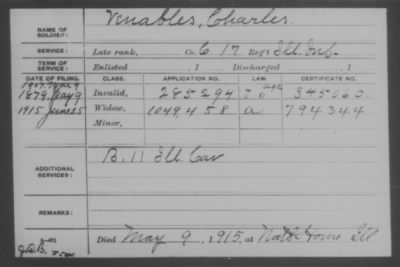 NAME OF SOLDIER: Venables, Charles.
SERVICE: Late rank, Co. C 17 Reg't Ill. Inf.
TERM OF SERVICE: Enlisted , 1 Discharged , 1
DATE OF FILING. CLASS. APPLICATION NO. LAW. CERTIFICATE NO.
1879 May 9 Invalid, 285294 345060.
1915 June 25 Widow, 1049.458 a 794344
Minor,
ADDITIONAL SERVICES: B. 11 Ill Cav
REMARKS:
Died May 9, 1915, at Nat'l Home Ill